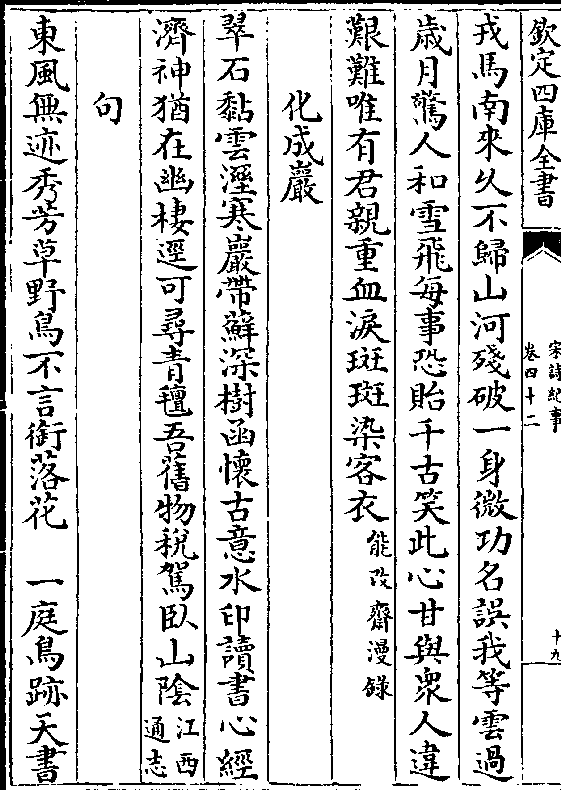 欽定四庫全書
宋詩紀事
卷四十二
十九
戎馬南來久不歸山河殘破一身微功名誤我等雲過
歲月驚人和雪飛每事恐貽千古笑此心甘與衆人違
艱難唯有君親重血淚斑斑染客衣能改齋漫錄
化成巖
翠石黏雲溼寒巖帶蘚深樹函懷古意水印讀書心經
濟神猶在幽棲逕可尋青氊吾舊物稅駕臥山陰江西通志
句
東風無迹秀芳草野鳥不言銜落花　一庭鳥跡天書